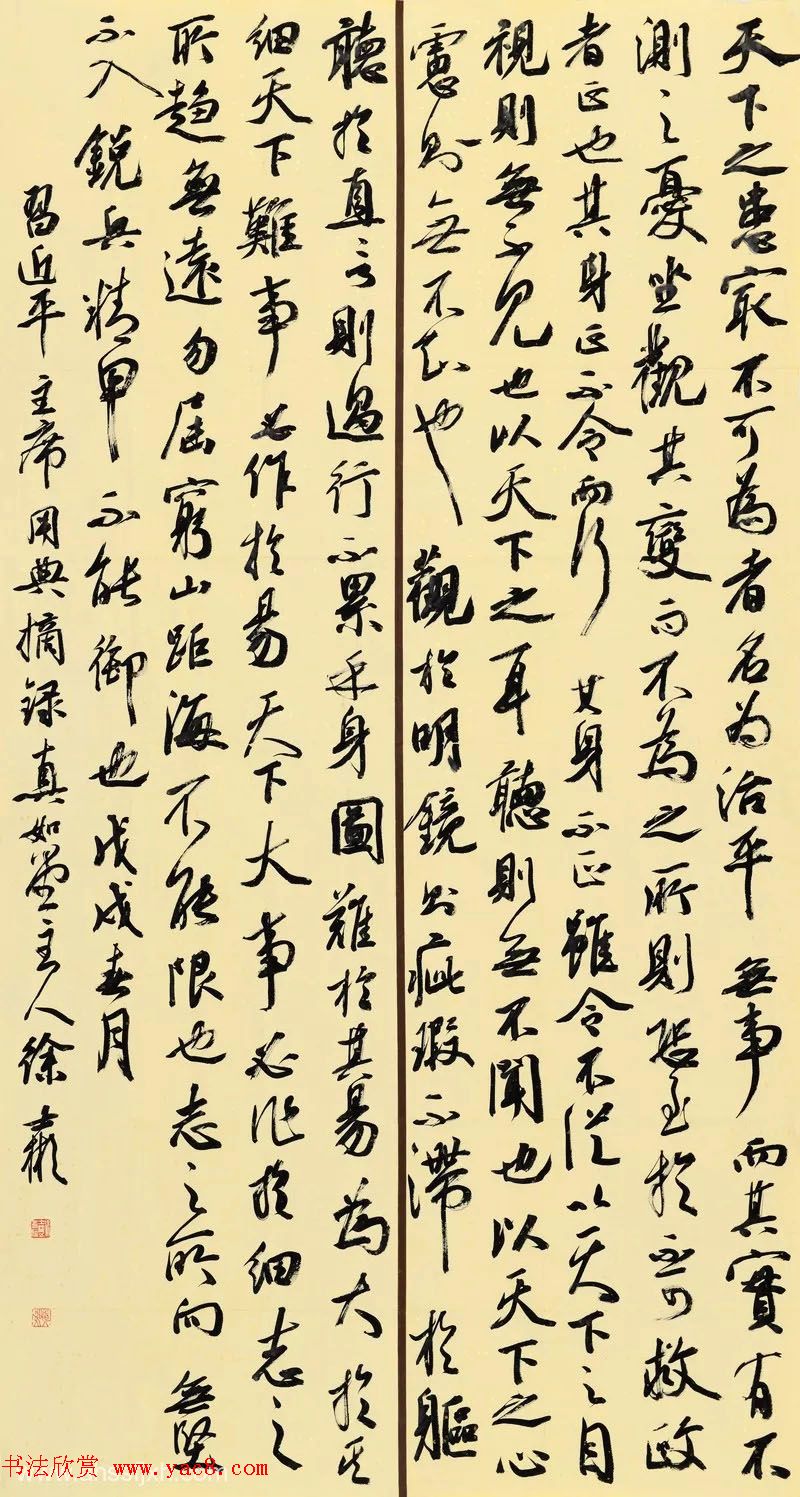 天下之患最不可為者名为治平無事而其實有不
測之憂坐觀其變而不為之所則恐至於不可救政
者正也其身正不令而行其身不正雖令不從以天下之目
視則無不見也以天下之耳聽則無不聞也以天下之心
慮則無不知也觀於明鏡則疵瑕不滯於軀
聽於直言則過行不累乎身圖難於其易為大於其
細天下難事必作於易天下大事必作於細志之
所趨無遠勿屆窮山距海不能限也志之所向無堅
不入銳兵精甲不能御也戊戌春月
習近平主席用典摘録真如堂主人徐
书法欣赏 www.yac8.com